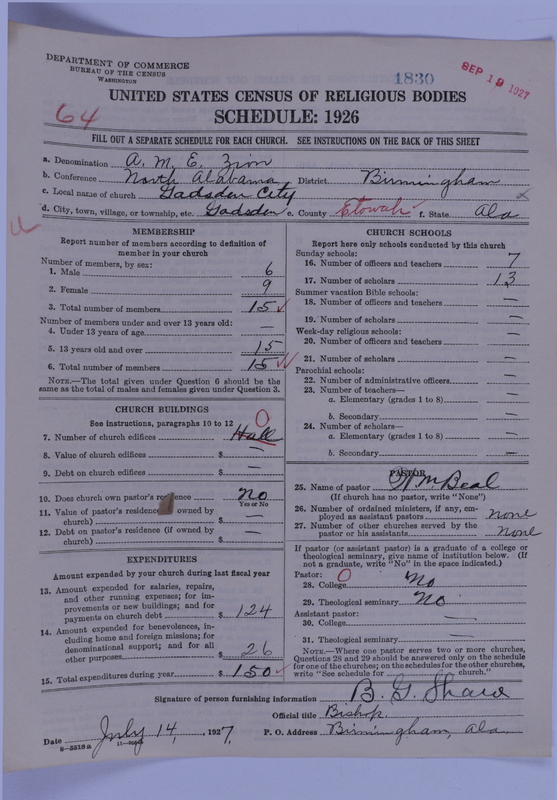 DEPARTMENT OF COMMERCE
BUREAU OF THE CENSUS
WASHINGTON
1830
SEP 19 1927
64
UNITED STATES CENSUS OF RELIGIOUS BODIES
SCHEDULE: 1926
FILL OUT A SEPARATE SCHEDULE FOR EACH CHURCH. SEE INSTRUCTIONS ON THE BACK OF THIS SHEET
a. Denomination A. M. E. Zion
b. Conference North Alabama District Birmingham
c. Local name of church Gadsden City
d. City, town, village, or township, etc. Gadsden e. County Etowah f. State Ala
MEMBERSHIP
Report number of members according to definition of
member in your church
Number of members, by sex:
1. Male 6
2. Female 9
3. Total number of members 15
Number of members under and over 13 years old:
4. Under 13 years of age —
5. 13 years old and over 15
6. Total number of members 15
NOTE.—The total given under Question 6 should be the
same as the total of males and females given under Question 3.
CHURCH BUILDINGS
See instructions, paragraphs 10 to 12 0
7. Number of church edifices Hall
8. Value of church edifices $ —
9. Debt on church edifices $ —
10. Does church own pastor's residence No
Yes or No
11. Value of pastor's residence (if owned by
church) $ —
12. Debt on pastor's residence (if owned by
church) $ —
EXPENDITURES
Amount expended by your church during last fiscal year
13. Amount expended for salaries, repairs,
and other running expenses; for im-
provements or new buildings; and for
payments on church debt $ 124
14. Amount expended for benevolences, in-
cluding home and foreign missions; for
denominational support; and for all
other purposes $ 26
15. Total expenditures during year $ 150
CHURCH SCHOOLS
Report here only schools conducted by this church
Sunday schools:
16. Number of officers and teachers 7
17. Number of scholars 13
Summer vacation Bible schools:
18. Number of officers and teachers —
19. Number of scholars —
Week-day religious schools:
20. Number of officers and teachers —
21. Number of scholars —
Parochial schools:
22. Number of administrative officers —
23. Number of teachers—
a. Elementary (grades 1 to 8) —
b. Secondary —
24. Number of scholars—
a. Elementary (grades 1 to 8) —
b. Secondary —
PASTOR
25. Name of pastor Wm Beal
(If church has no pastor, write "None")
26. Number of ordained ministers, if any, em-
ployed as assistant pastors none
27. Number of other churches served by the
pastor or his assistants none
If pastor (or assistant pastor) is a graduate of a college or
theological seminary, give name of institution below. (If
not a graduate, write "No" in the space indicated.)
Pastor: 0
28. College No
29. Theological seminary No
Assistant pastor:
30. College —
31. Theological seminary —
NOTE.—Where one pastor serves two or more churches,
Questions 28 and 29 should be answered only on the schedule
for one of the churches; on the schedules for the other churches,
write "See schedule for church."
Signature of person furnishing information B. G. Shaw
Official title Bishop
Date July 14, 1927. P. O. Address Birmingham, Ala.
8-5518a